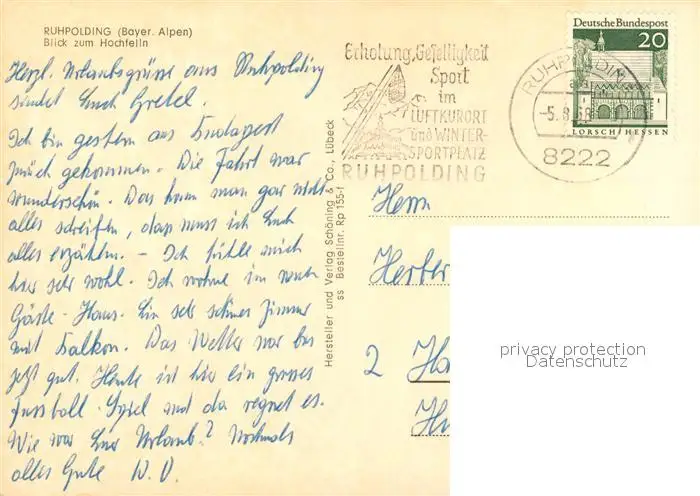 RUHPOLDING (Bayer. Alpen)
Blick zum Hochfelln
Herzl. Urlaubsgrüsse aus Ruhpolding
sendet Euch Gretel.
Ich bin gestern aus Budapest
zurück gekommen. Die Fahrt war
wunderschön. Das kann man gar nicht
alles schreiben, das muss ich Euch
alles erzählen. – Ich fühle mich
hier sehr wohl. Ich wohne im neuen
Gäste-Haus. Ein sehr schönes Zimmer
mit Balkon. Das Wetter war bis
jetzt gut. Heute ist hier ein grosses
Fussball-Spiel und da regnet es.
Wie war Euer Urlaub? Nochmals
alles Gute
Hersteller und Verlag Schöning & Co., Lübeck
ss Bestellnr. Rp 155-f
Erholung, Geselligkeit
Sport
im
LUFTKURORT
und WINTER-
SPORTPLATZ
RUHPOLDING
Deutsche Bundespost
20
LORSCH/HESSEN
RUHPOLDING
-5.8.68
8222
Herrn
Herber
2 Ha
privacy protection
Datenschutz